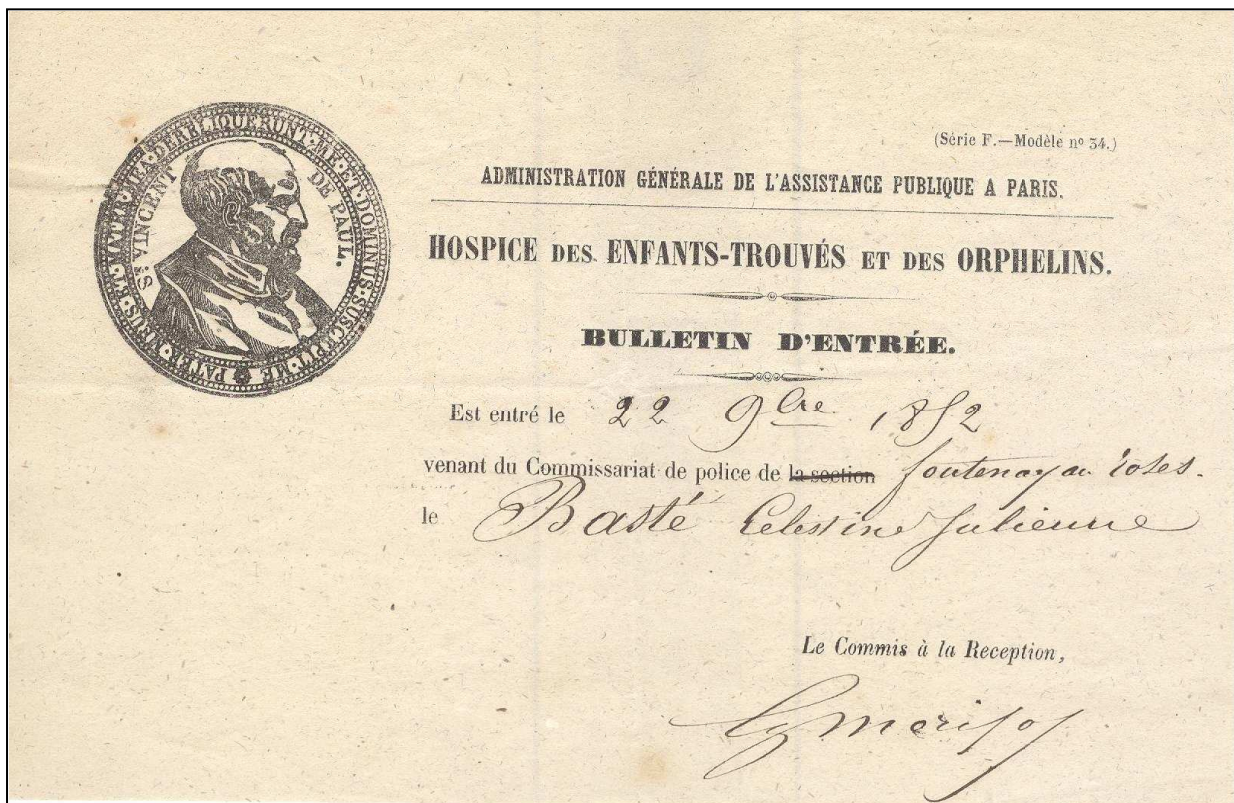 PATER MEUS ET MATER MEA DERELIQUERUNT ME ET DOMINUS SUSCEPIT ME
St VINCENT DE PAUL.
(Série F.—Modèle nº 34.)
ADMINISTRATION GÉNÉRALE DE L'ASSISTANCE PUBLIQUE A PARIS.
HOSPICE DES ENFANTS-TROUVÉS ET DES ORPHELINS.
BULLETIN D'ENTRÉE.
Est entré le 22 9bre 1852
venant du Commissariat de police de la section fontenay au roses.
le Basté Celestine Julienne
Le Commis à la Reception,